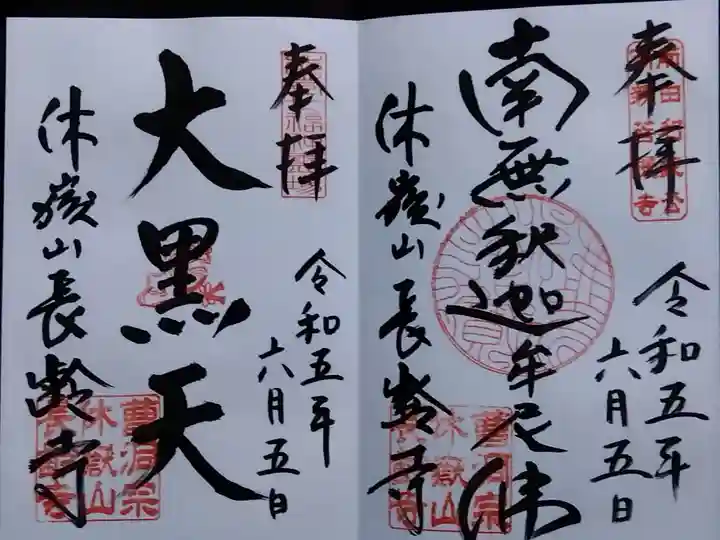 奉拝
令和五年
六月五日
南無釈迦牟尼佛
休嶽山長齢寺
曹洞宗
休嶽山
長齢寺
奉拝
令和五年
六月五日
大黒天
休嶽山長齢寺
曹洞宗
休嶽山
長齢寺